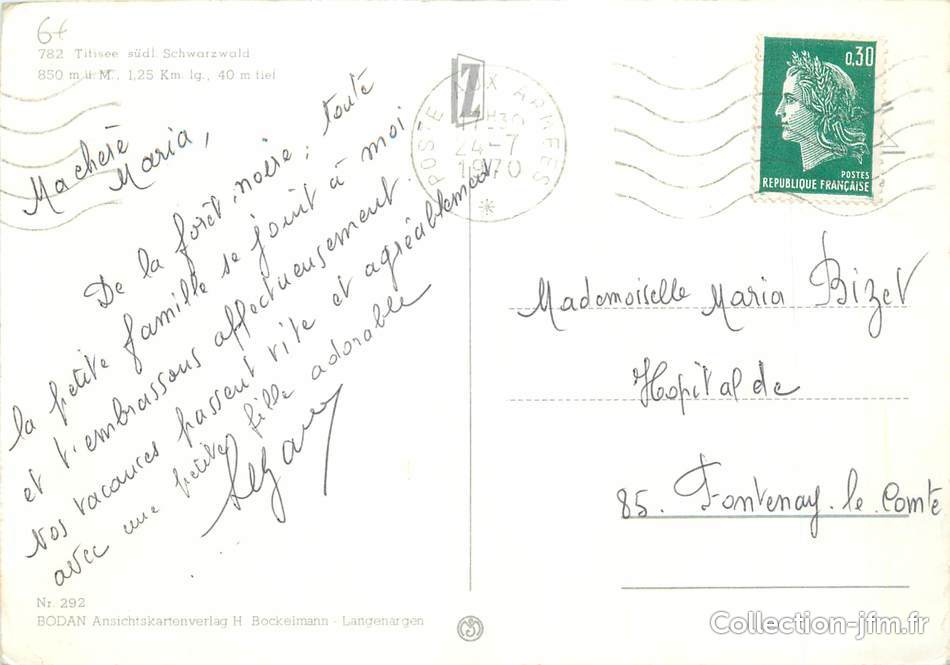 6f
782 Titisee südl. Schwarzwald
850 m ü. M., 1,25 Km. lg., 40 m tief
Ma chère
Maria,
De la forêt noire, toute
la petite famille se joint à moi
et t'embrassons affectueusement.
Nos vacances passent vite et agréablement
avec une petite fille adorable
Nr. 292
BODAN Ansichtskartenverlag H. Bockelmann - Langenargen
Z
POSTE AUX ARMEES
17H30
24-7
1970
*
0,30
POSTES
REPUBLIQUE FRANÇAISE
Mademoiselle Maria Bizet
Hopital de
85. Fontenay. le. Comte
Collection-jfm.fr